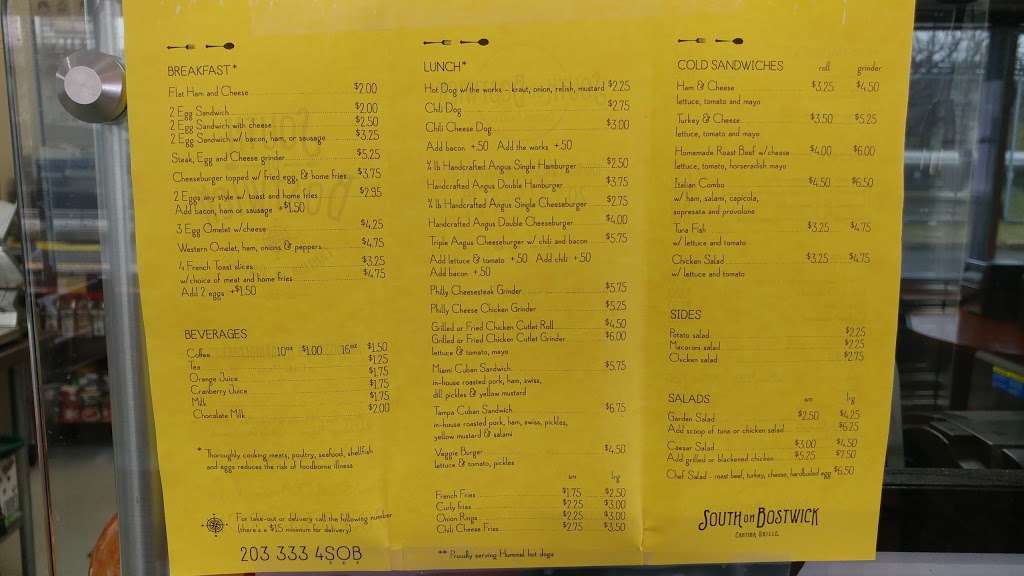 BREAKFAST*
Flat Ham and Cheese $2.00
2 Egg Sandwich $2.00
2 Egg Sandwich with cheese $2.50
2 Egg Sandwich w/ bacon, ham, or sausage $3.25
Steak, Egg and Cheese grinder $5.25
Cheeseburger topped w/ fried egg, & home fries $3.75
2 Eggs any style w/ toast and home fries $2.95
Add bacon, ham or sausage +$1.50
3 Egg Omelet w/cheese $4.25
Western Omelet, ham, onions & peppers $4.75
4 French Toast slices $3.25
w/choice of meat and home fries $4.75
Add 2 eggs +$1.50
BEVERAGES
Coffee 10oz $1.00 16oz $1.50
Tea $1.25
Orange Juice $1.75
Cranberry Juice $1.75
Milk $1.75
Chocolate Milk $2.00
* Thoroughly cooking meats, poultry, seafood, shellfish
and eggs reduces the risk of foodborne illness
For take-out or delivery call the following number
(there's a $15 minimum for delivery)
203 333 4SOB
LUNCH*
Hot Dog w/the works - kraut, onion, relish, mustard $2.25
Chili Dog $2.75
Chili Cheese Dog $3.00
Add bacon +.50 Add the works +.50
¼ lb Handcrafted Angus Single Hamburger $2.50
Handcrafted Angus Double Hamburger $3.75
¼ lb Handcrafted Angus Single Cheeseburger $2.75
Handcrafted Angus Double Cheeseburger $4.00
Triple Angus Cheeseburger w/ chili and bacon $5.75
Add lettuce & tomato +.50 Add chili +.50
Add bacon +.50
Philly Cheesesteak Grinder $5.75
Philly Cheese Chicken Grinder $5.25
Grilled or Fried Chicken Cutlet Roll $4.50
Grilled or Fried Chicken Cutlet Grinder $6.00
lettuce & tomato, mayo
Miami Cuban Sandwich $5.75
in-house roasted pork, ham, swiss,
dill pickles & yellow mustard
Tampa Cuban Sandwich $6.75
in-house roasted pork, ham, swiss, pickles,
yellow mustard & salami
Veggie Burger $4.50
lettuce & tomato, pickles
sm lrg
French Fries $1.75 $2.50
Curly fries $2.25 $3.00
Onion Rings $2.25 $3.00
Chili Cheese Fries $2.75 $3.50
** Proudly serving Hummel hot dogs
COLD SANDWICHES roll grinder
Ham & Cheese $3.25 $4.50
lettuce, tomato and mayo
Turkey & Cheese $3.50 $5.25
lettuce, tomato and mayo
Homemade Roast Beef w/cheese $4.00 $6.00
lettuce, tomato, horseradish mayo
Italian Combo $4.50 $6.50
w/ ham, salami, capicola,
sopresata and provolone
Tuna Fish $3.25 $4.75
w/ lettuce and tomato
Chicken Salad $3.25 $4.75
w/ lettuce and tomato
SIDES
Potato salad $2.25
Macaroni salad $2.25
Chicken salad $2.75
SALADS sm lrg
Garden Salad $2.50 $4.25
Add scoop of tuna or chicken salad $6.25
Caesar Salad $3.00 $4.50
Add grilled or blackened chicken $5.25 $7.50
Chef Salad - meat beef, turkey, cheese, hardboiled egg $6.50
SOUTH ON BOSTWICK
CANTINA GRILLE